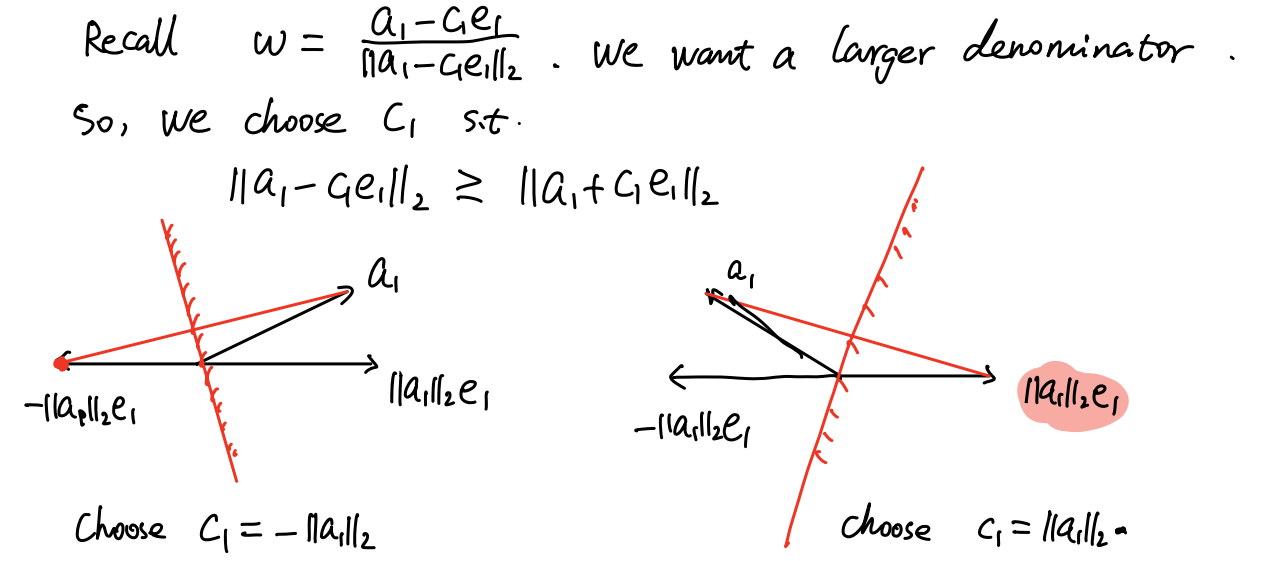 Recall w = (a₁ - c₁e₁) / ‖a₁ - c₁e₁‖₂ . We want a larger denominator .
So, we choose C₁ s.t.
‖a₁ - c₁e₁‖₂ ≥ ‖a₁ + c₁e₁‖₂
a₁
a₁
-‖a₁‖₂e₁ ‖a₁‖₂e₁
-‖a₁‖₂e₁ ‖a₁‖₂e₁
Choose C₁ = -‖a₁‖₂
choose c₁ = ‖a₁‖₂.